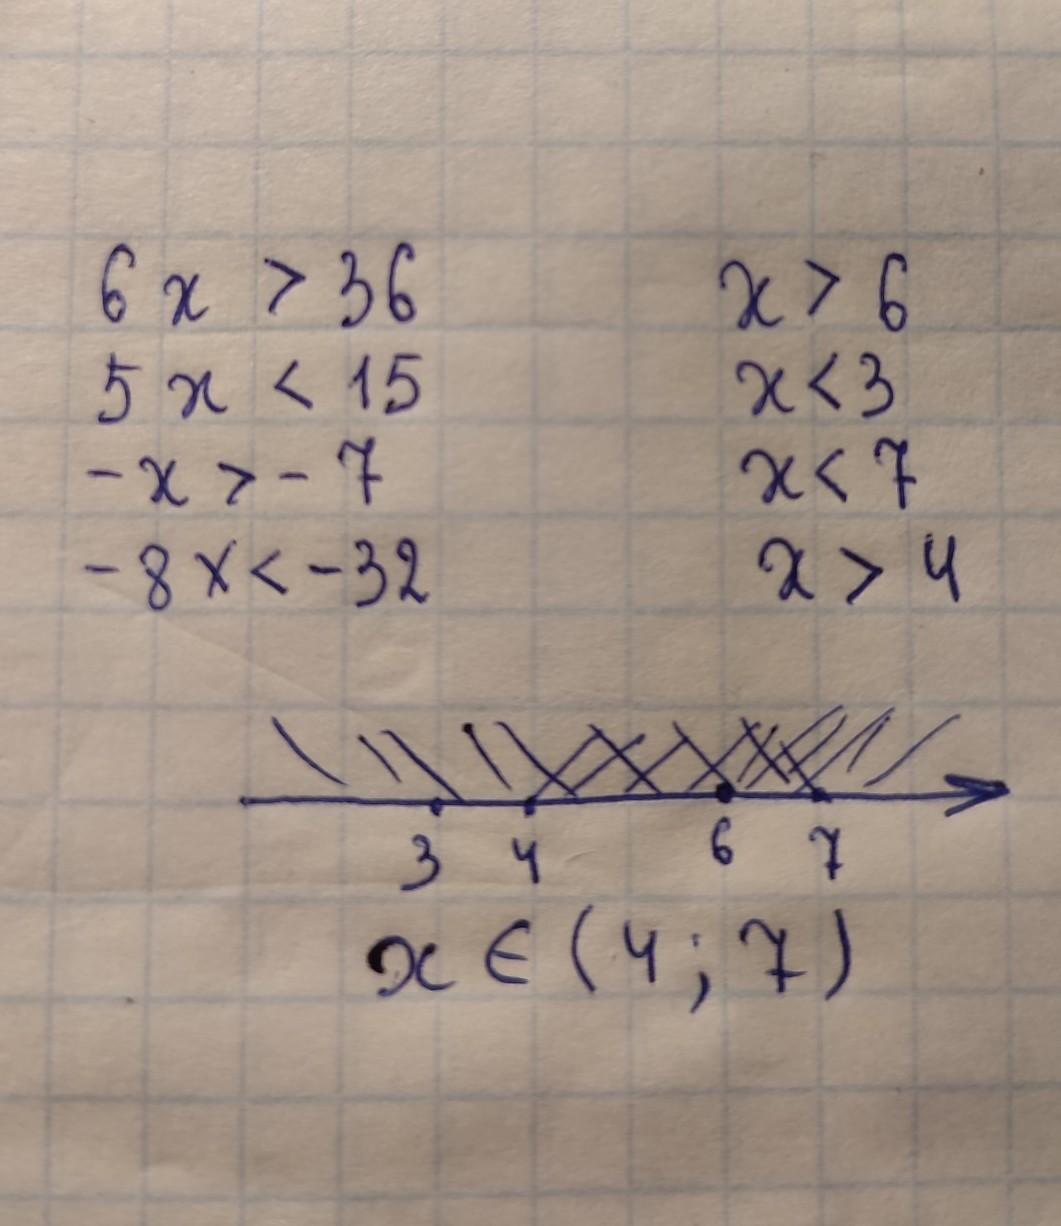 6x > 36 x > 6
5x < 15 x < 3
-x > -7 x < 7
-8x < -32 x > 4
3 4 6 7
x ∈ (4; 7)